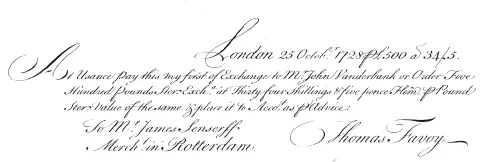 London 25 Octob.r 1728 ꝑ £.500 a 34/5.
At Usance Pay this my first of Exchange to M.r John Vanderbank or Order Five
Hundred Pounds Ster.g Exch.a at Thirty four Shillings & five pence Flem.h ꝑ Pound
Ster.g Value of the same & place it to Acco.t as ꝑ Advice.
To M.r James Senserff
Merch.t in Rotterdam.
Thomas Favoy